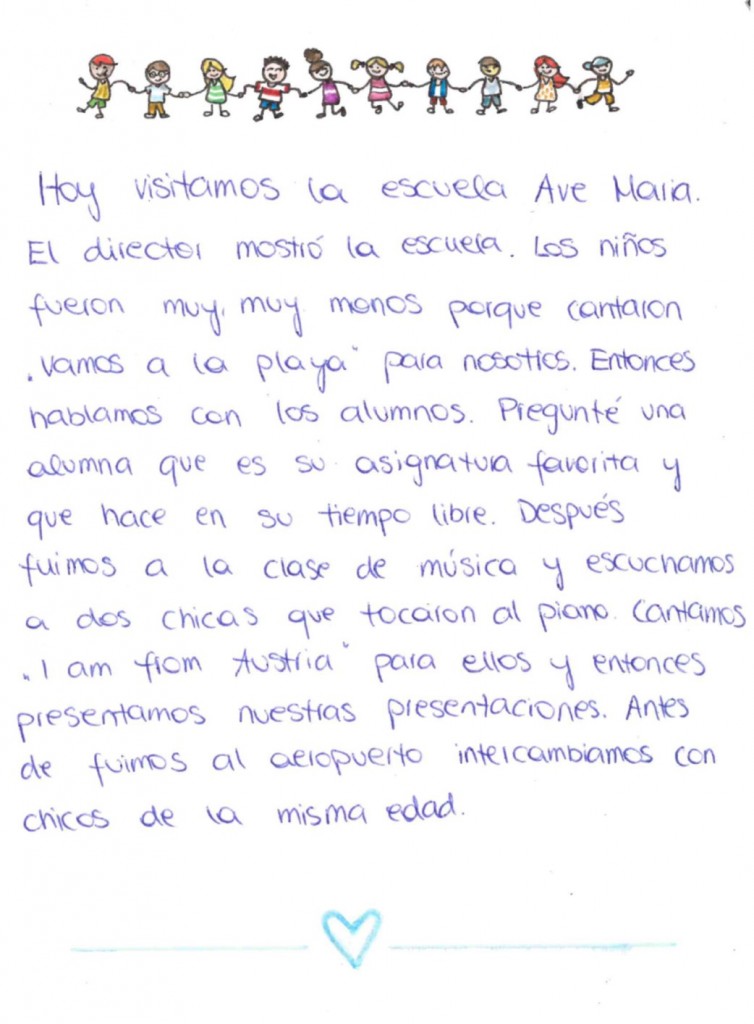 Hoy visitamos la escuela Ave Maria.
El director mostró la escuela. Los niños
fueron muy, muy monos porque cantaron
„Vamos a la playa“ para nosotros. Entonces
hablamos con los alumnos. Pregunté una
alumna que es su asignatura favorita y
que hace en su tiempo libre. Después
fuimos a la clase de música y escuchamos
a dos chicas que tocaron al piano. Cantamos
„I am from Austria“ para ellos y entonces
presentamos nuestras presentaciones. Antes
de fuimos al aeropuerto intercambiamos con
chicos de la misma edad.